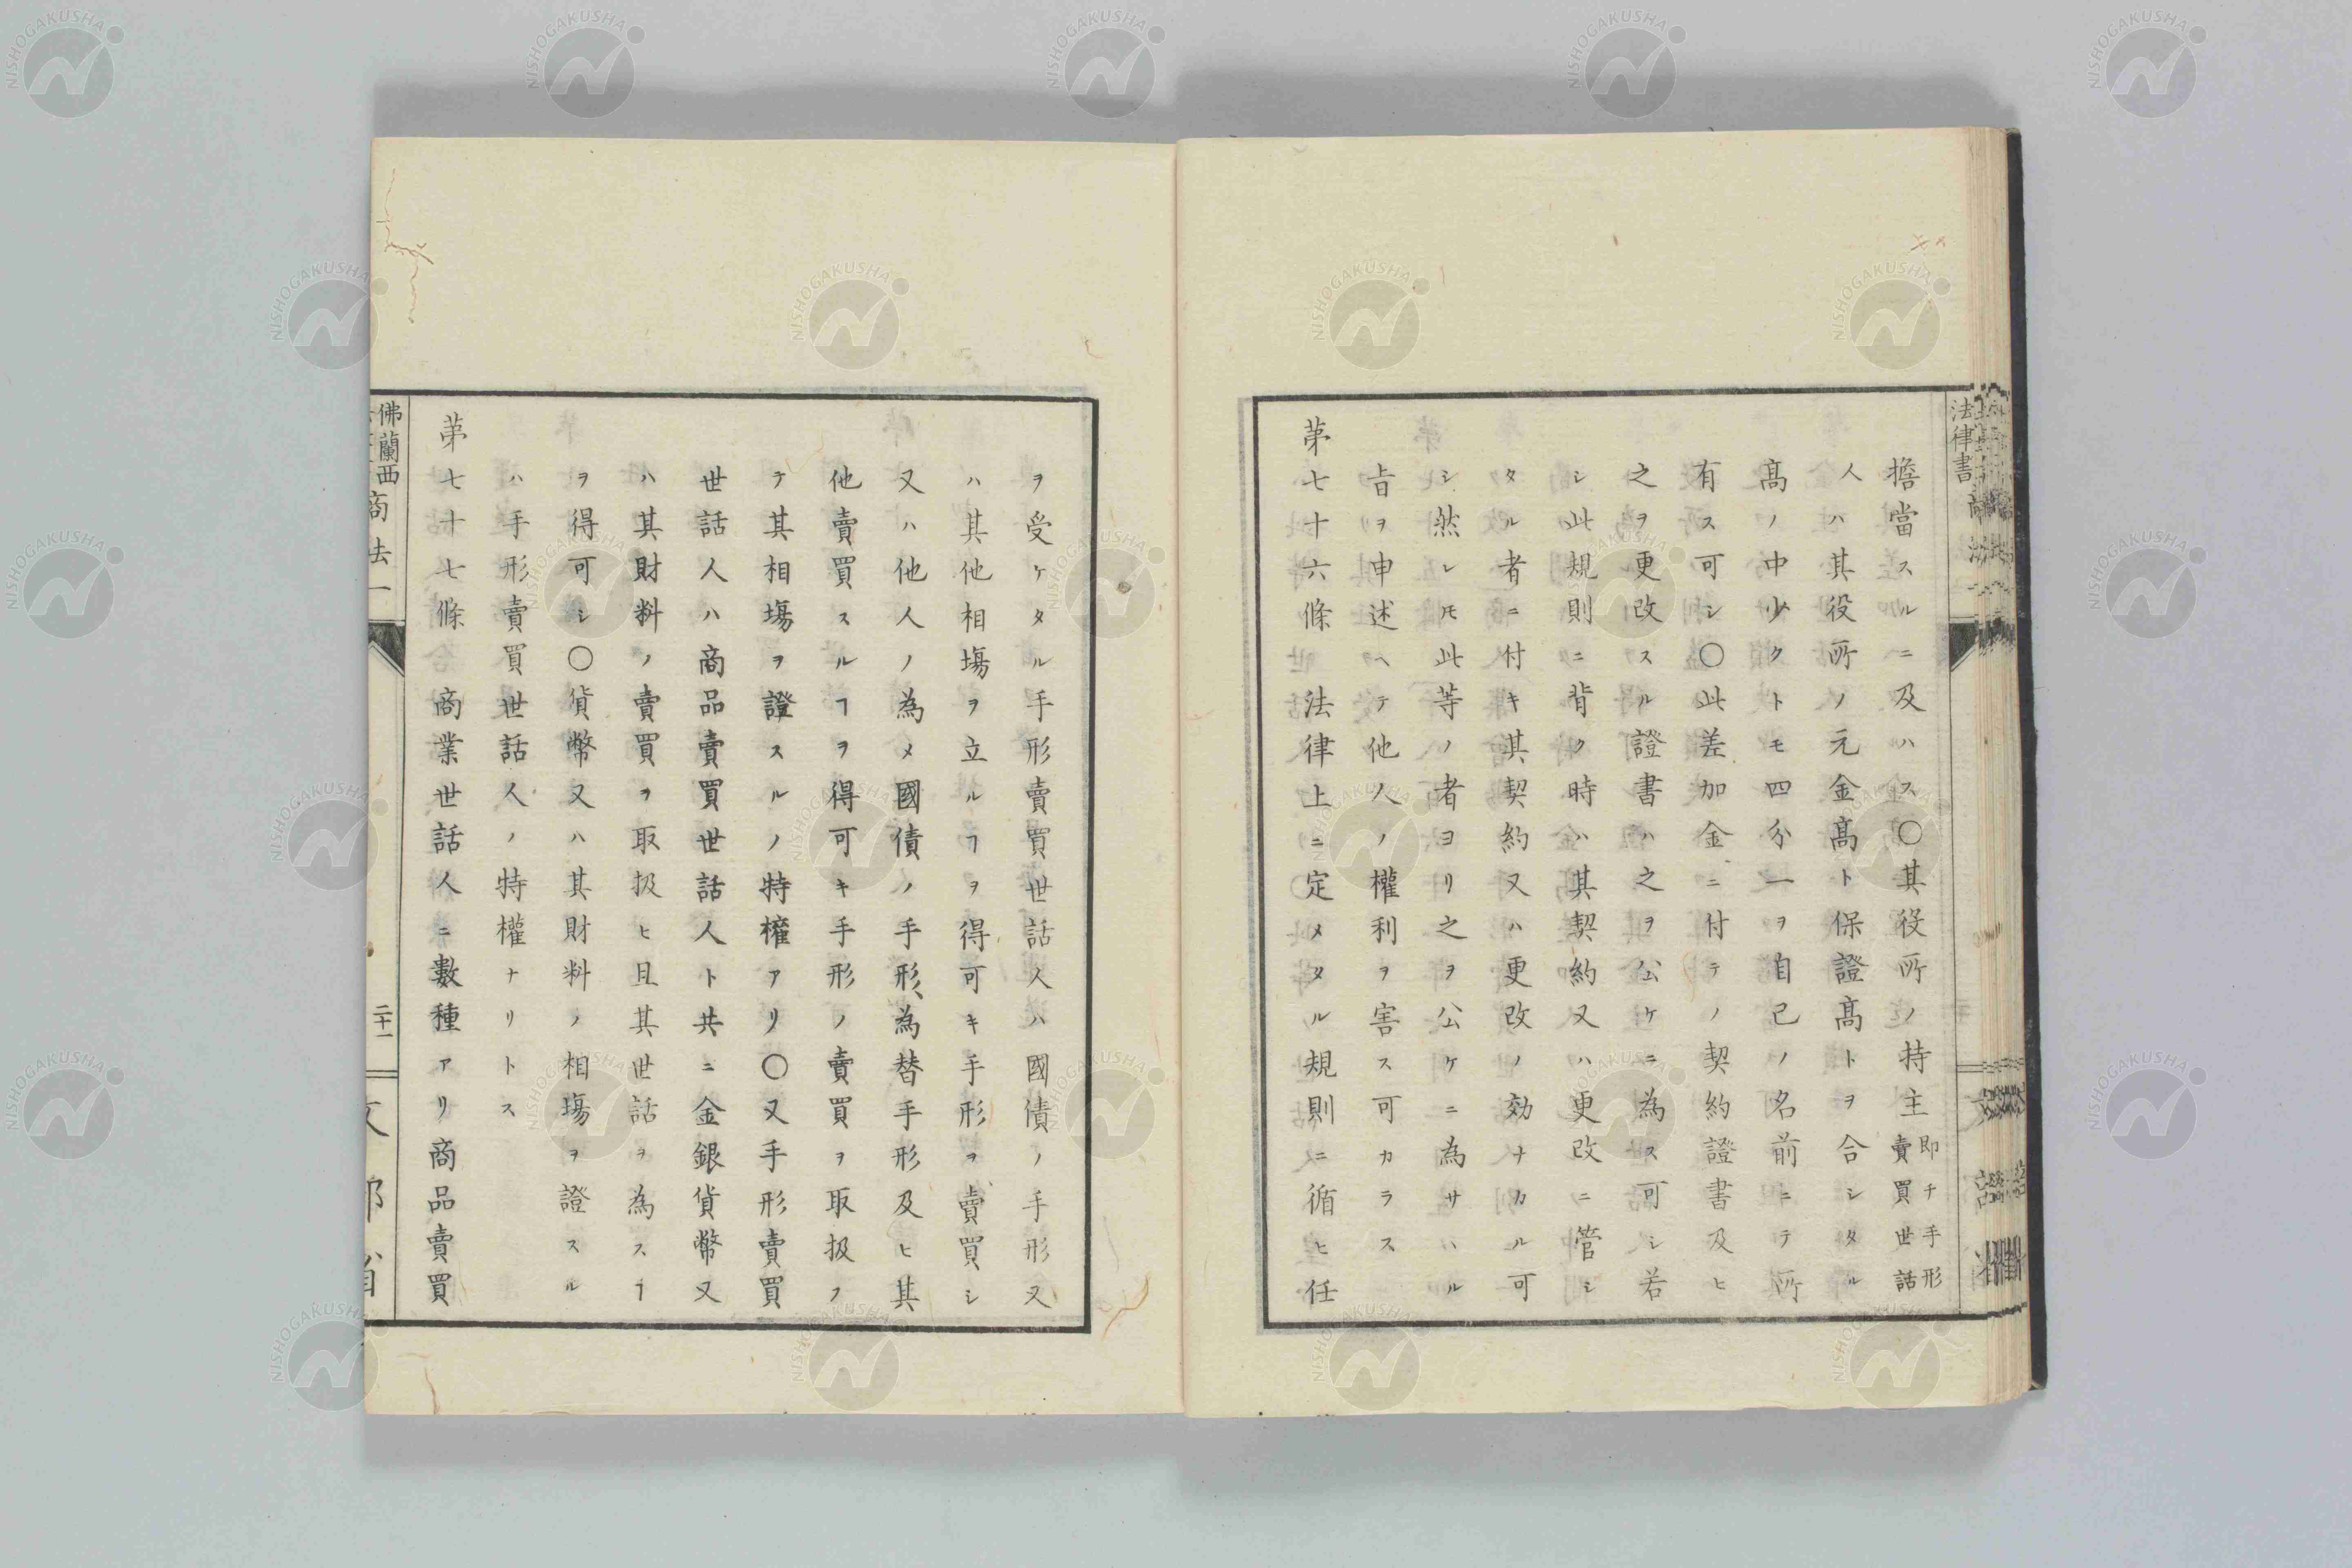 擔當スルニ及ハス〇其役所ノ持主即チ手形賣買世話
人ハ其役所ノ元金髙ト保證髙トヲ合シタル
髙ノ中少クトモ四分一ヲ自己ノ名前ニテ所
有ス可シ〇此差加金ニ付テノ契約證書及ヒ
之ヲ更改スル證書ハ之ヲ公ケニ為ス可シ若
シ此規則ニ背ク時ハ其契約又ハ更改ニ管シ
タル者ニ付キ其契約又ハ更改ノ効ナカル可
シ然レ𪜈此等ノ者ヨリ之ヲ公ケニ為サハル
旨ヲ申述ヘテ他人ノ權利ヲ害ス可カラス
苐七十六條 法律上ニ定メタル規則ニ循ヒ任
ヲ受ケタル手形賣買世話人ハ國債ノ手形又
ハ其他相塲ヲ立ルヿヲ得可キ手形ヲ賣買シ
又ハ他人ノ為メ國債ノ手形、為替手形及ヒ其
他賣買スルヿヲ得可キ手形ノ賣買ヲ取扱フ
テ其相塲ヲ證スルノ特權アリ〇又手形賣買
世話人ハ商品賣買世話人ト共ニ金銀貨幣又
ハ其財料ノ賣買ヲ取扱ヒ且其世話ヲ為スヿ
ヲ得可シ〇貨幣又ハ其財料ノ相塲ヲ證スル
ハ手形賣買世話人ノ特權ナリトス
苐七十七條 商業世話人ニ數種アリ商品賣買
佛蘭西
商法一
二十一
文部省
法律書
商法一
NISHOGAKUSHA